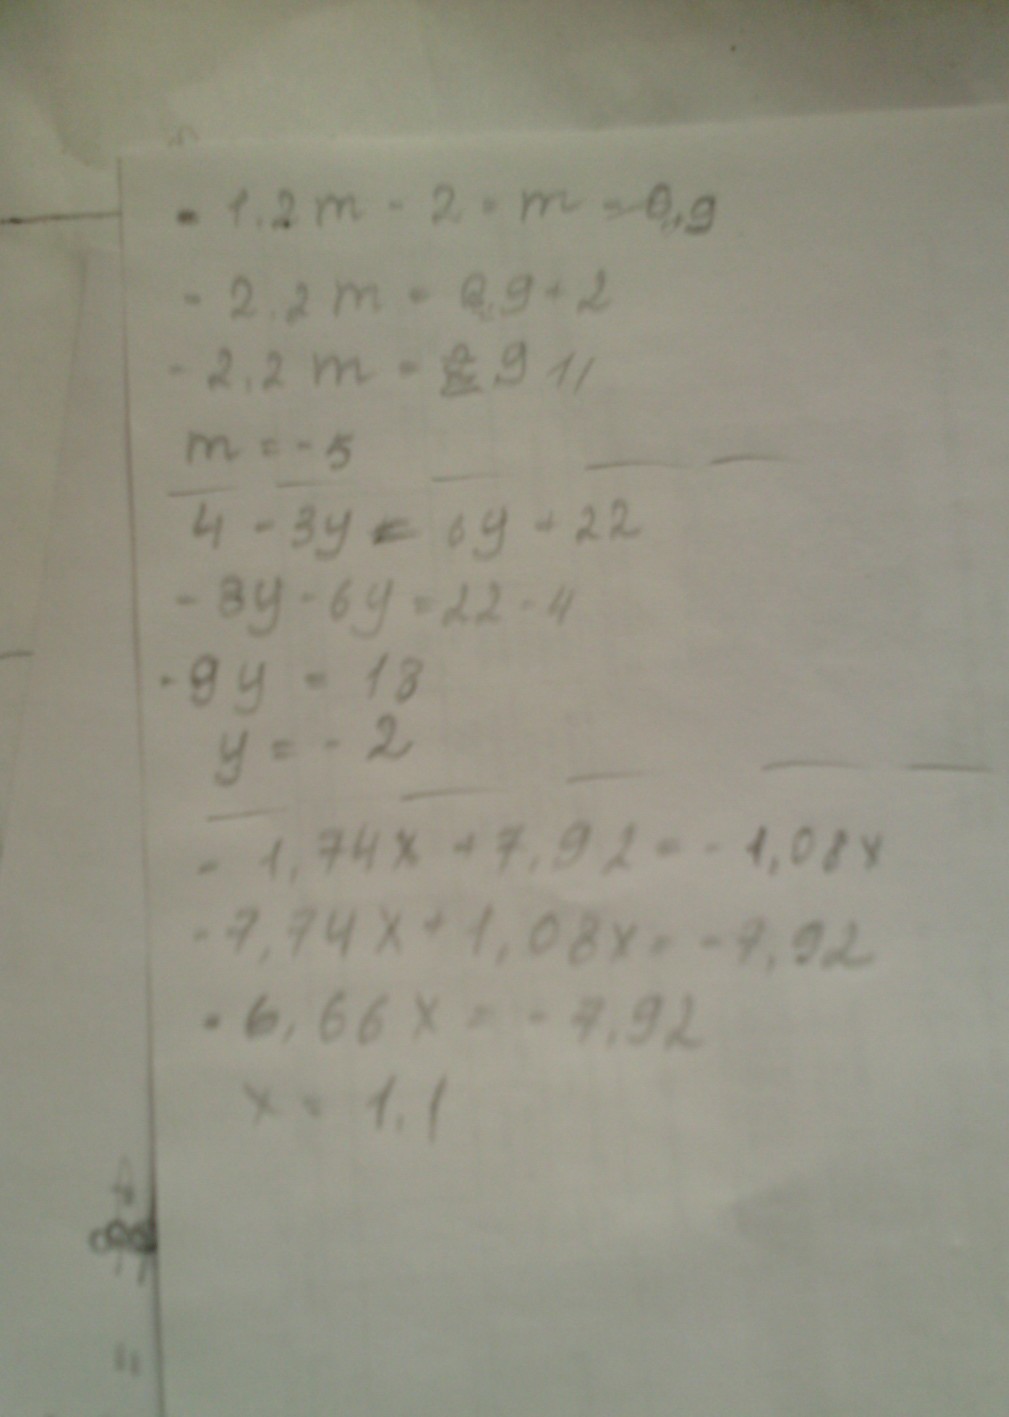 - 1.2m - 2 - m = 0,9
- 2.2m = 0,9 + 2
- 2.2m = 2,9 11
m = - 5
4 - 3y = 6y + 22
- 3y - 6y = 22 - 4
- 9y = 18
y = - 2
- 1,74x + 7,92 = - 1,08x
- 7,74x + 1,08x = - 7,92
- 6,66x = - 7,92
x = 1.1